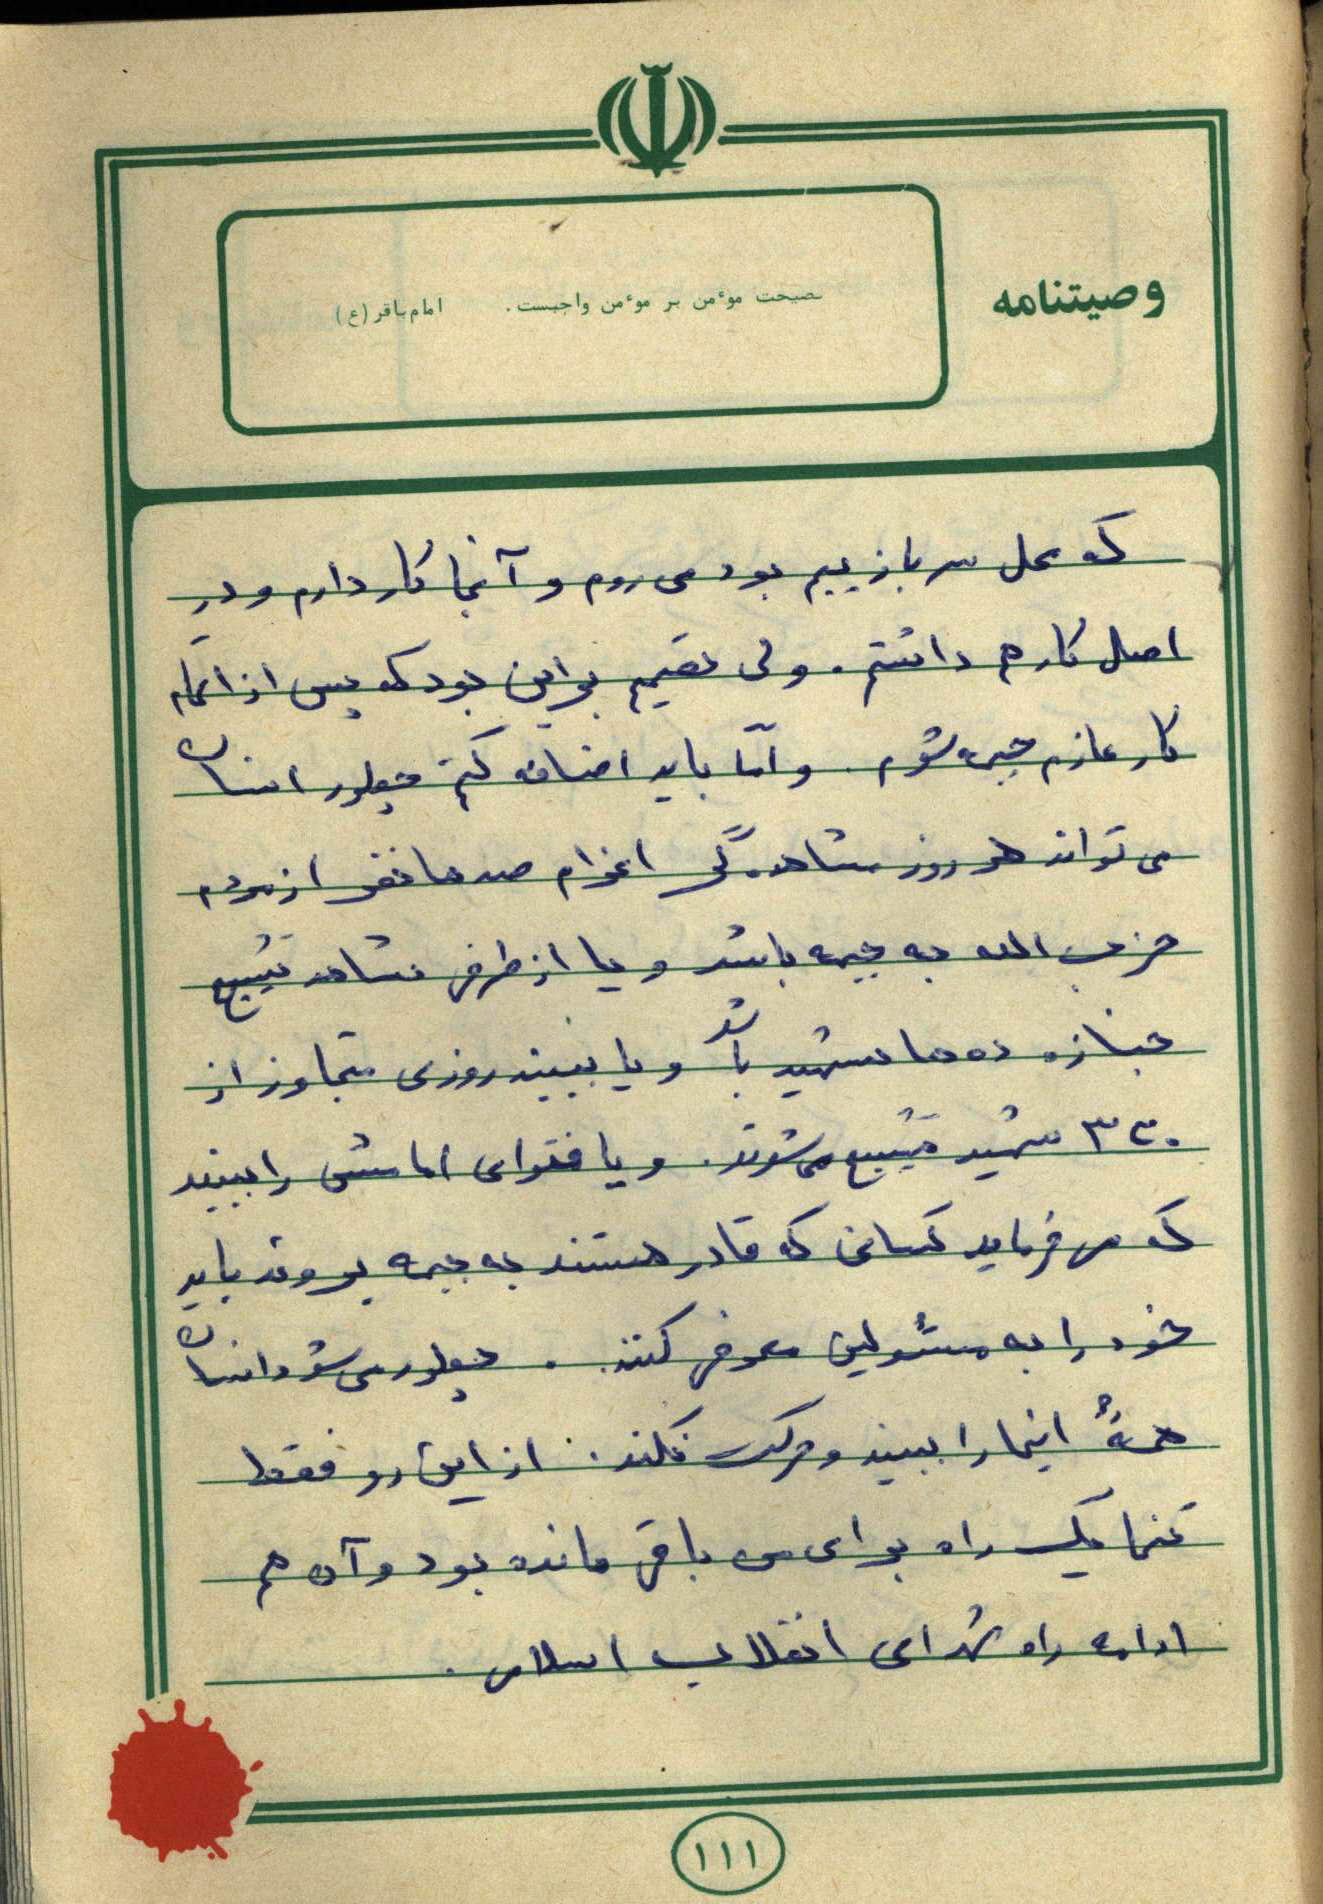 وصیتنامه
نصیحت موءمن بر موءمن واجبست. امام باقر (ع)
که محل سربازییم بود می روم و آنجا کار دارم و در
اصل کار هم داشتم. ولی تصمیم براین بود که پس از اتمام
کار عازم جبهه شوم. و امّا باید اضافه کنم چطور انسان
می تواند هر روز مشاهده گر اعزام صدها نفر از مردم
حزب الله به جبهه باشد و یا از طرفی مشاهد تشییع
جنازه ده ها شهید باشد و یا ببیند روزی متجاوز از
۳۳۰ شهید تشییع می شوند. و یا فتوای امامش را ببیند
که می فرماید کسانی که قادر هستند به جبهه بروند باید
خود را به مسئولین معرفی کنند. چطور می شود انسان
همهٔ اینها را ببیند و حرکت نکند. از این رو فقط
تنها یک راه برای من باقی مانده بود و آن هم
ادامه راه شهدای انقلاب اسلامی.
۱۱۱